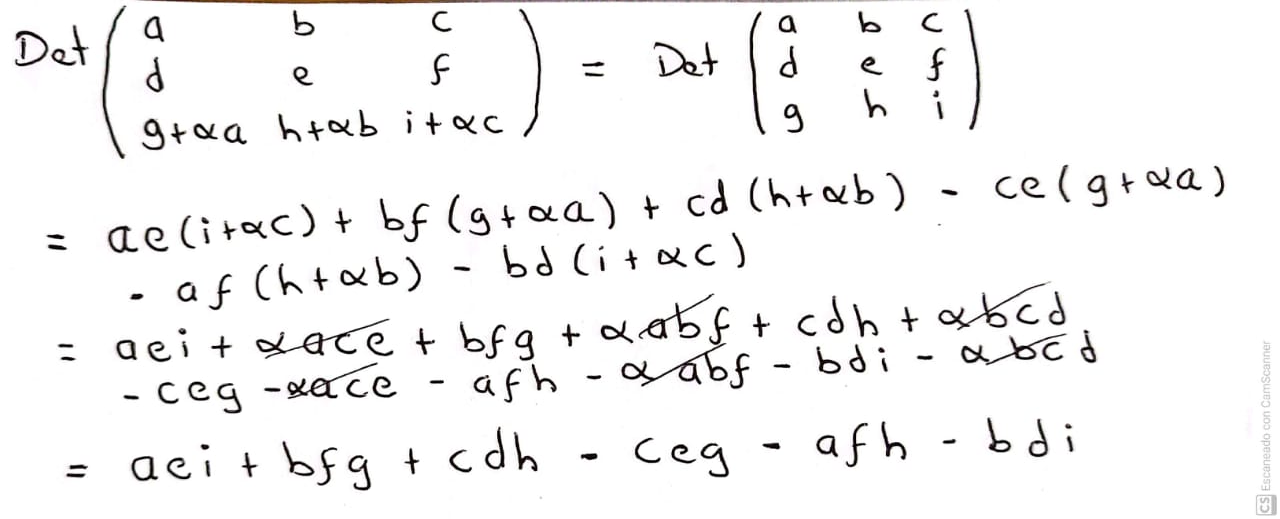 Det ( a b c ) = Det ( a b c )
d e f d e f
g+αa h+αb i+αc g h i
= ae(i+αc) + bf(g+αa) + cd(h+αb) - ce(g+αa)
- af(h+αb) - bd(i+αc)
= aei + αace + bfg + αabf + cdh + αbcd
- ceg - αace - afh - αabf - bdi - αbcd
= aei + bfg + cdh - ceg - afh - bdi
CS Escaneado con CamScanner